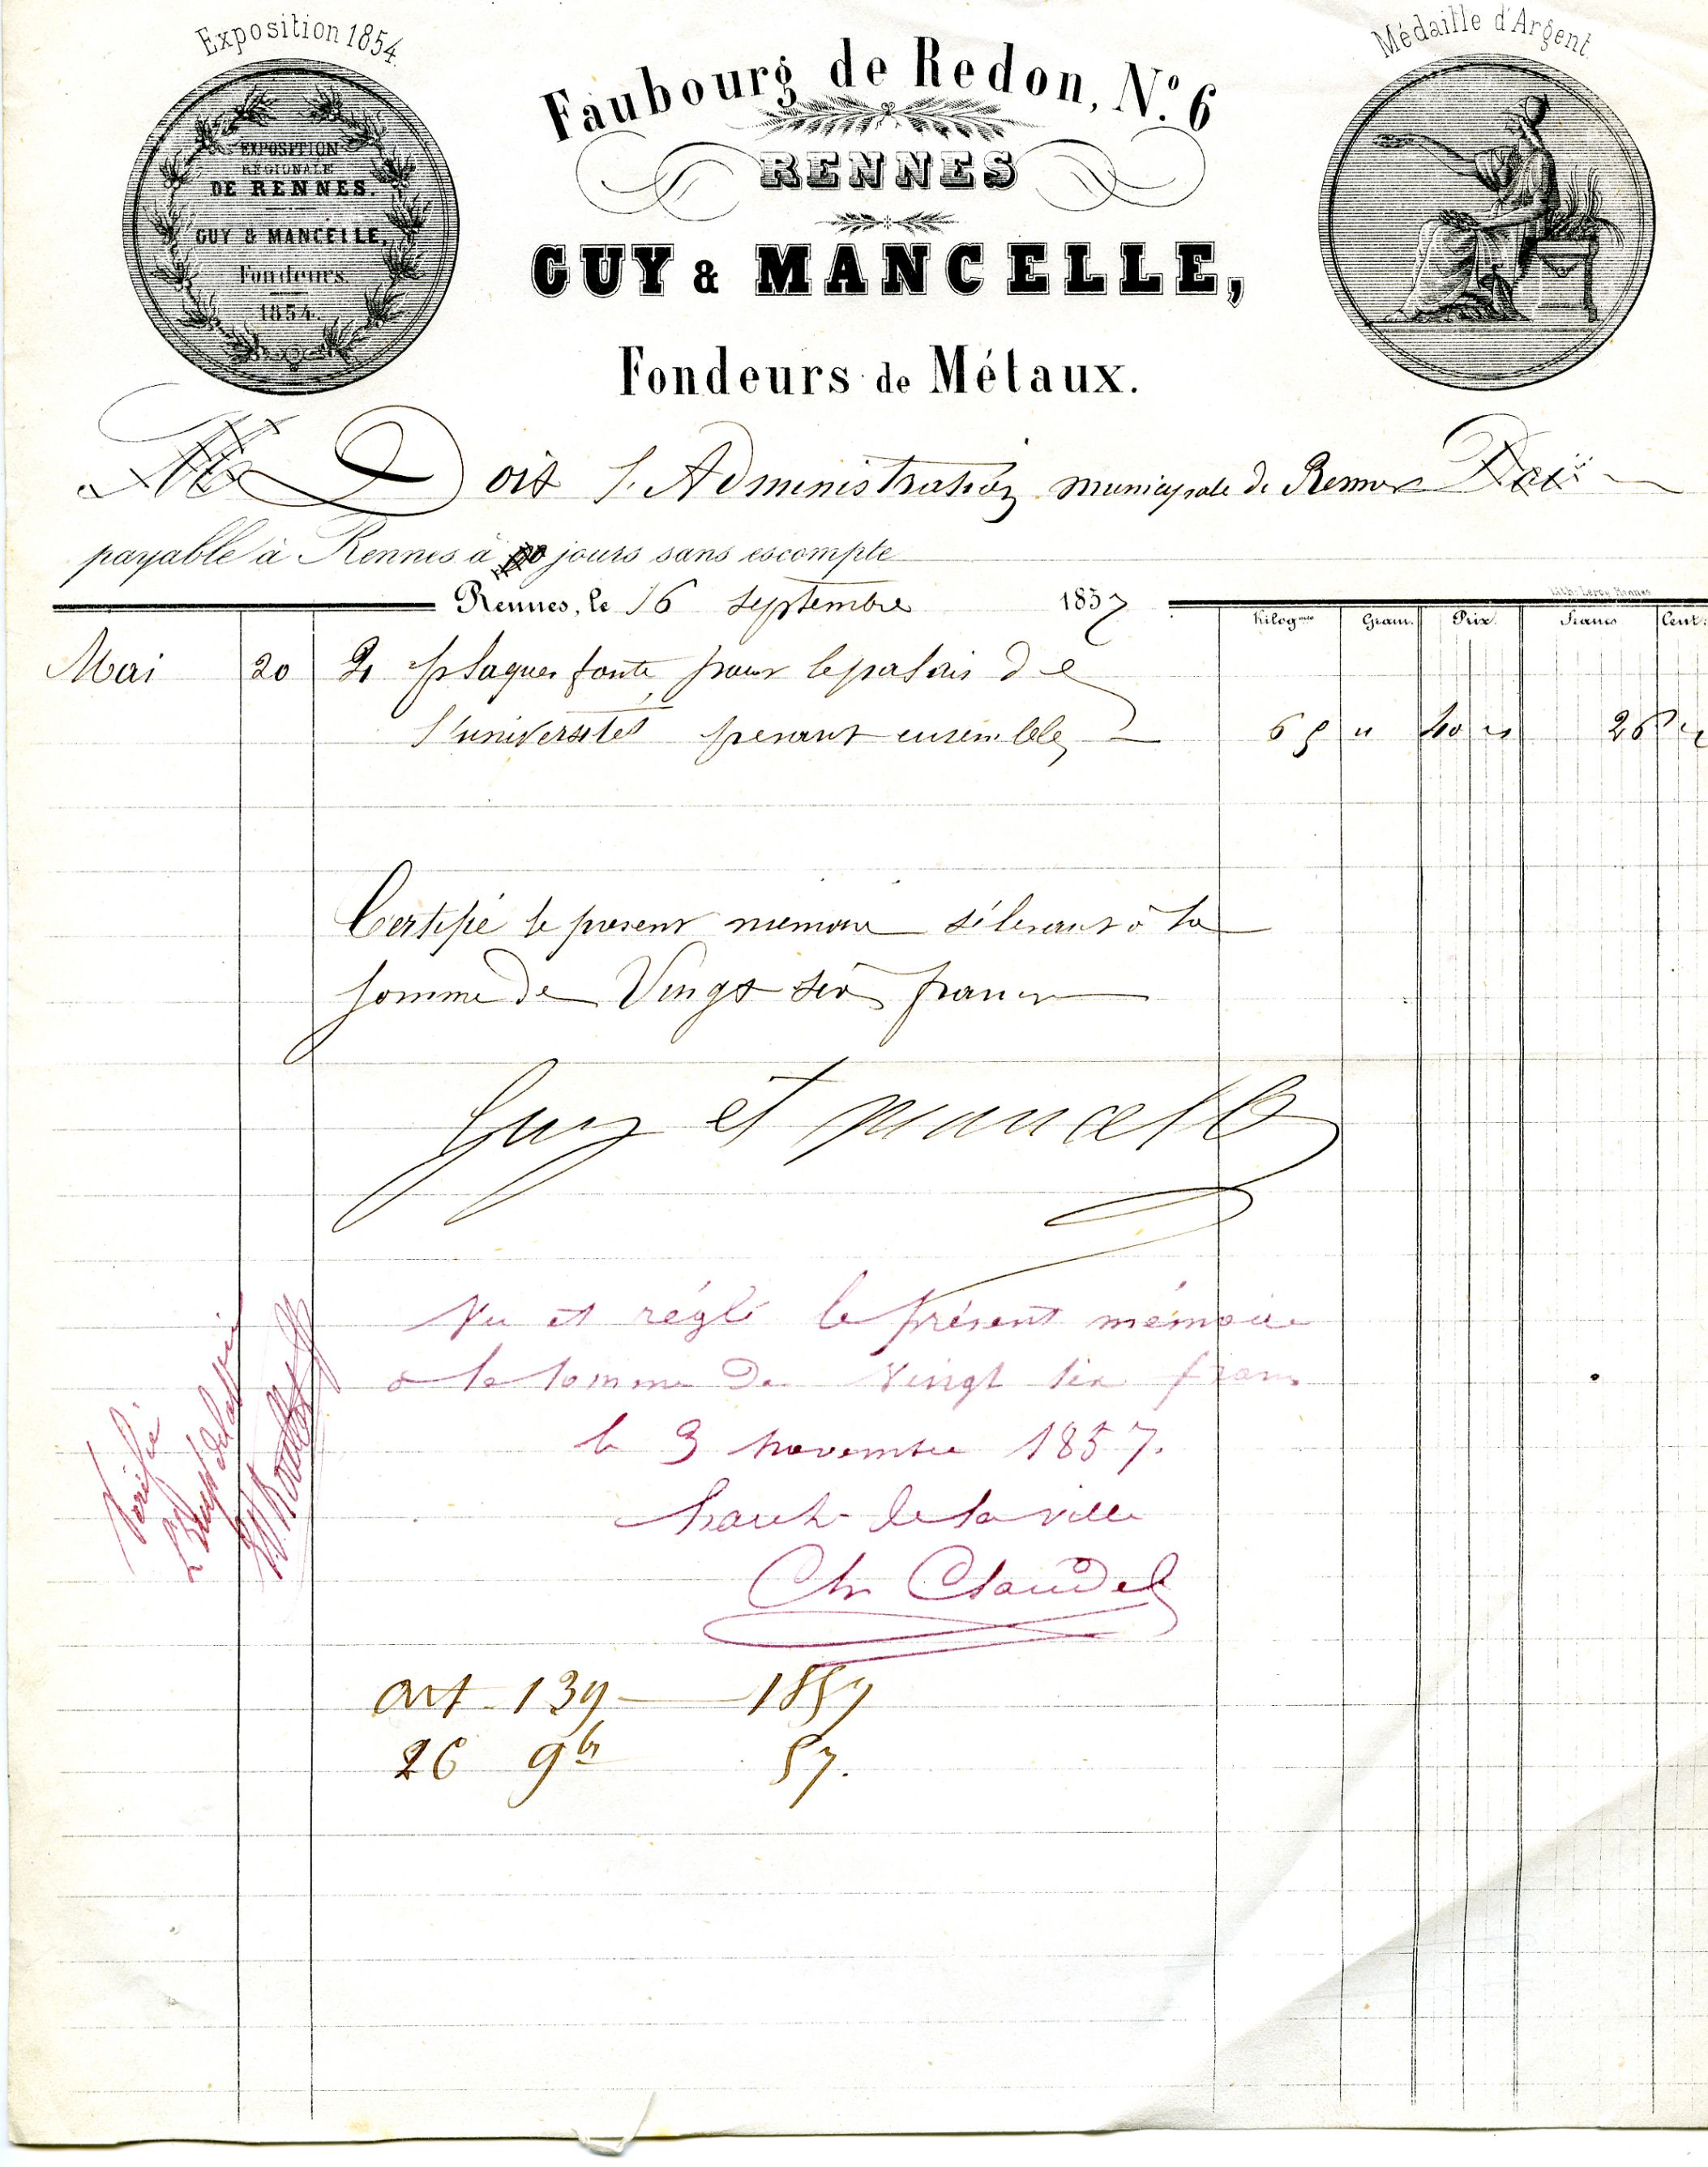 Exposition 1854.
Médaille d'Argent
EXPOSITION
RÉGIONALE
DE RENNES.
GUY & MANCELLE,
Fondeurs.
1854.
Faubourg de Redon, N.° 6
RENNES
GUY & MANCELLE,
Fondeurs de Métaux.
Doit l'Administration municipale de Rennes Doit
payable à Rennes à jours sans escompte
Rennes, le 16 septembre 1857
Lith. Leroy Rennes
Kilog Gram. Prix Francs Cent.
Mai 20 2 plaques fonte pour le palais de
l'université pesant ensemble 65 " 40 " 26 "
Certifié le present memoire s'élevant à la
somme de Vingt six francs
Guy et Mancelle
Vu et réglé le présent mémoire
à la somme de Vingt six francs
le 3 novembre 1857.
de la ville
Ch Claudel
Vérifié
art. 139 1857
26 9bre 57.